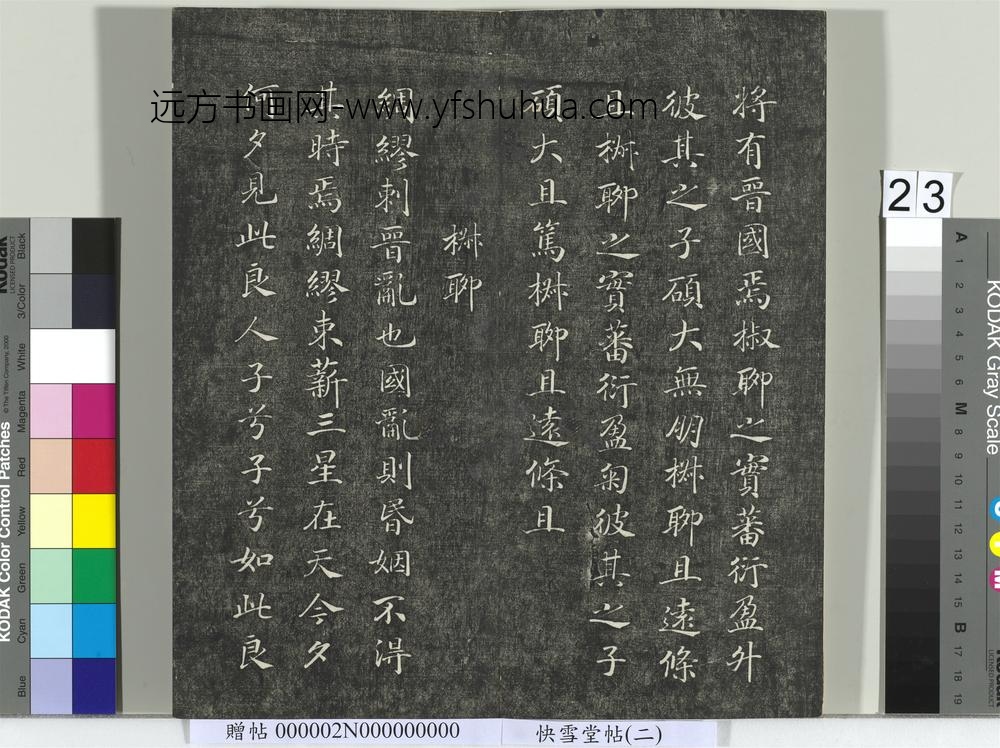 將有晉國焉椒聊之實蕃衍盈升
彼其之子碩大無朋椒聊且遠條
且椒聊之實蕃衍盈匊彼其之子
碩大且篤椒聊且遠條且
椒聊
綢繆刺晉亂也國亂則昬姻不得
其時焉綢繆束薪三星在天今夕
何夕見此良人子兮子兮如此良
远方书画网-www.yfshuhua.com
23
贈帖 000002N000000000
快雪堂帖(二)
KODAK Color Control Patches
© The Tiffen Company, 2000
Kodak
LICENSED PRODUCT
Blue
Cyan
Green
Yellow
Red
Magenta
White
3/Color
Black
KODAK Gray Scale
A 1 2 3 4 5 6 M 8 9 10 11 12 13 14 15 B 17 18 19
C
Y
M